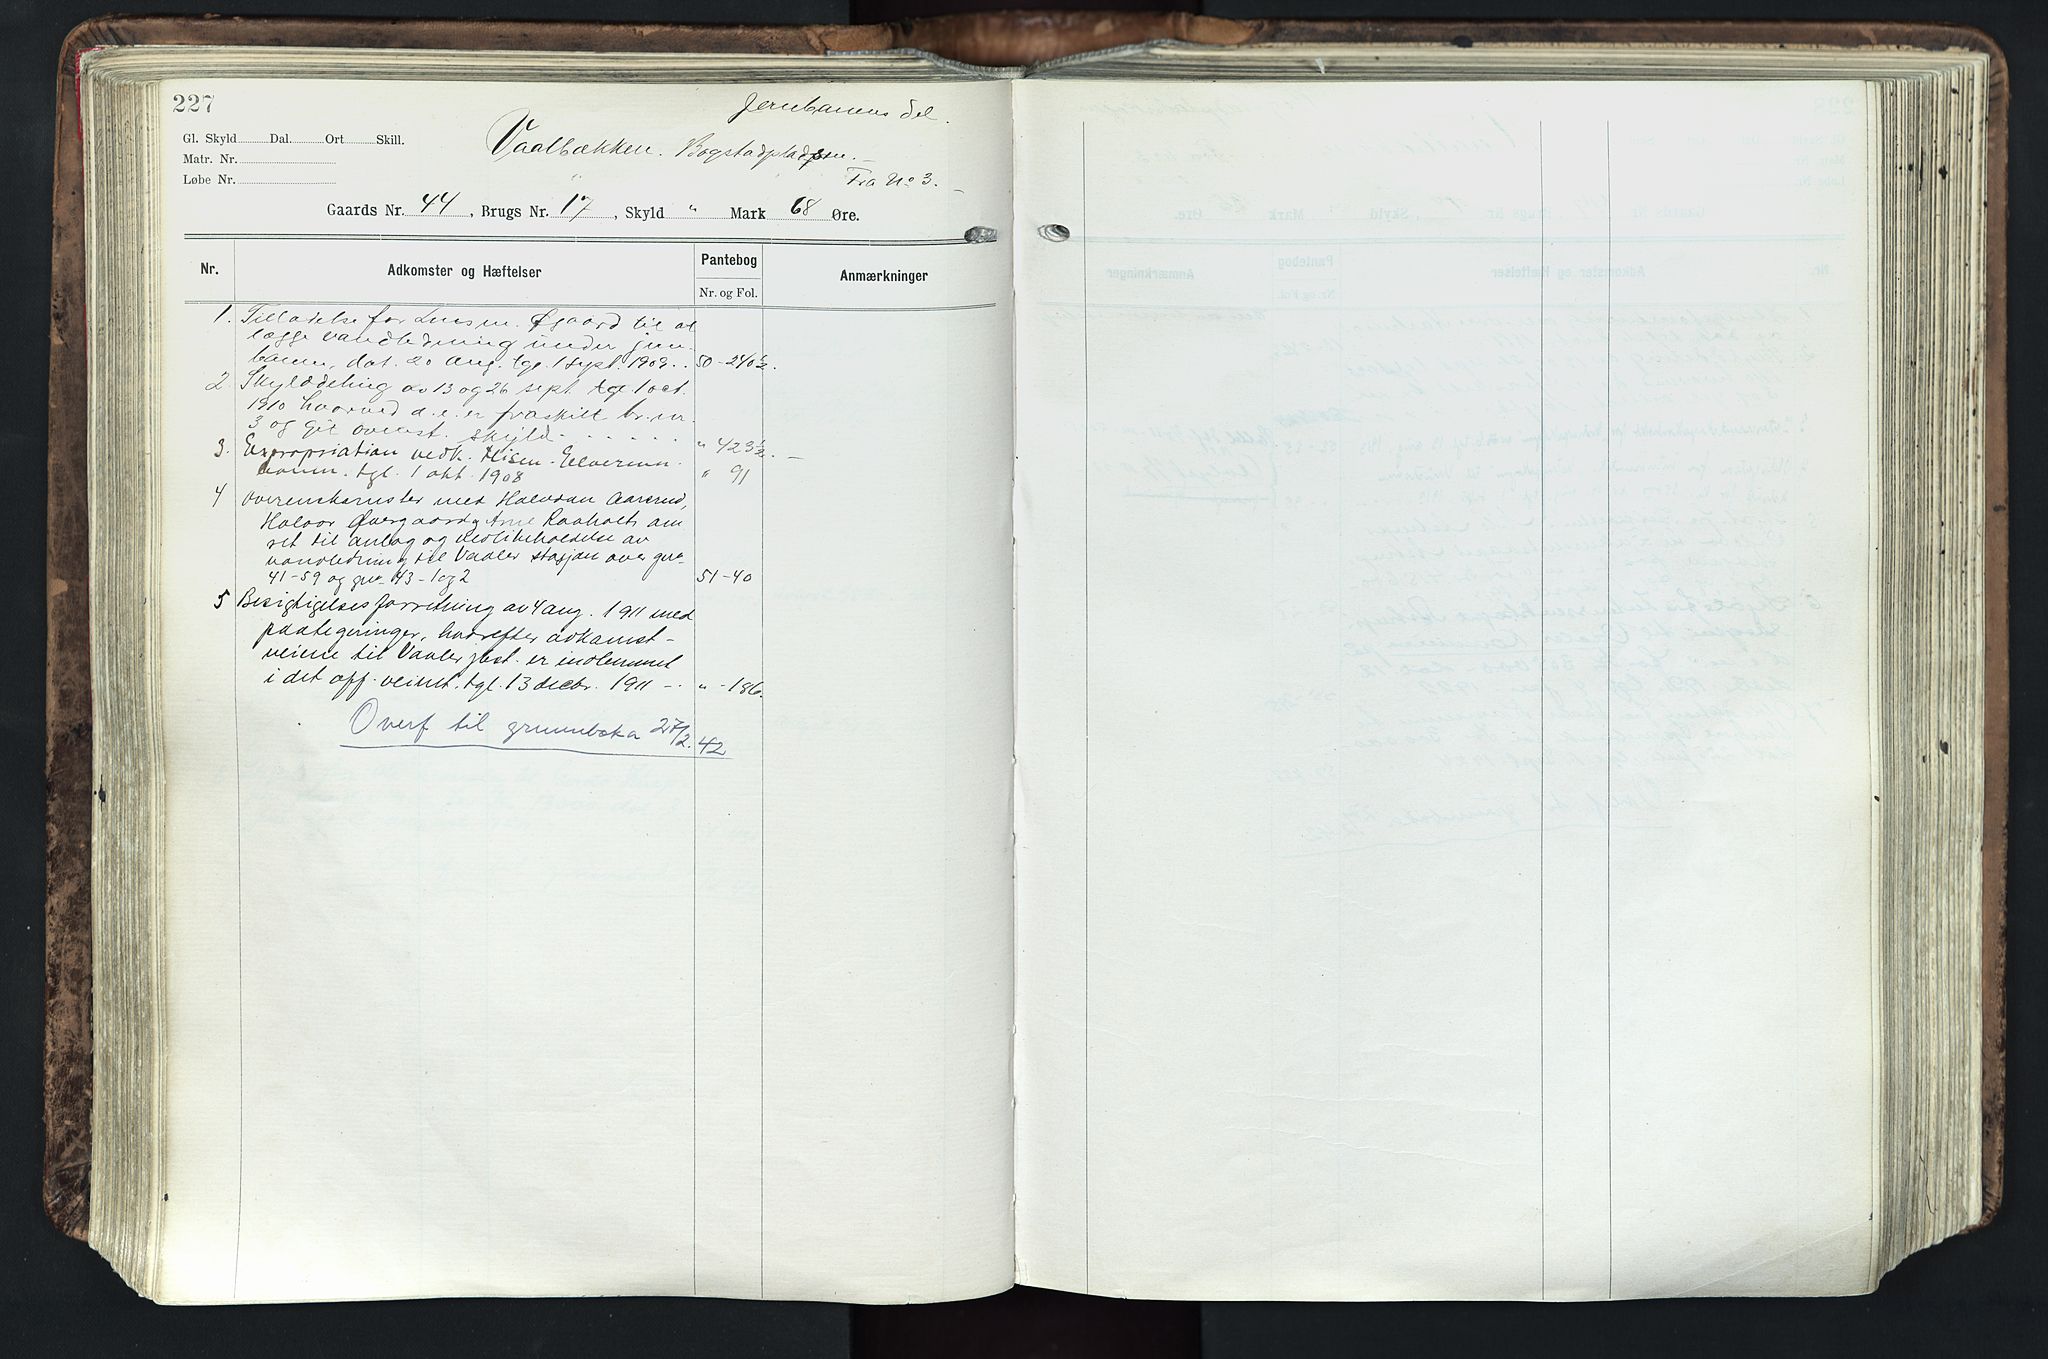 227
Jernbanens del.
Gl. Skyld Dal. Ort Skill.
Vaalbækken. Bogstadpladsen.
Matr. Nr.
Løbe Nr.
Fra No 3.
Gaards Nr. 44, Brugs Nr. 17, Skyld " Mark 68 Øre.
Nr. Adkomster og Hæftelser Pantebog Anmærkninger
Nr. og Fol.
1. Tilladelse for Øgaard til at
lægge vandledning under jern-
banen, dat. 20 aug. tgl. 1 sept. 1909. 50-240½.
2. Skylddeling av 13 og 26 sept. tgl. 1 oct.
1910 hvorved d. e. er fraskilt br. nr
3 og git ovenst. skyld " 423½.
3. Expropriation vedk. Elverum
banen. tgl. 1 okt. 1908 " 91
4 Overenskomster med Halvdan Aaserud,
Halvor Øvergaard og Arne Raaholt om
ret til anlæg og vedlikeholdelse av
vandledning til Vaaler stasjon over gnr
41-59 og gnr. 43-1 og 2 51-40
5 Besigtigelsesforretning av 4 aug. 1911 med
paategninger, hvorefter adkomst-
veiene til Vaaler jbst. er indlemmet
i det off. veinet. tgl. 13 decbr. 1911 -. " -186.
Overf til grunnboka 27/2.42